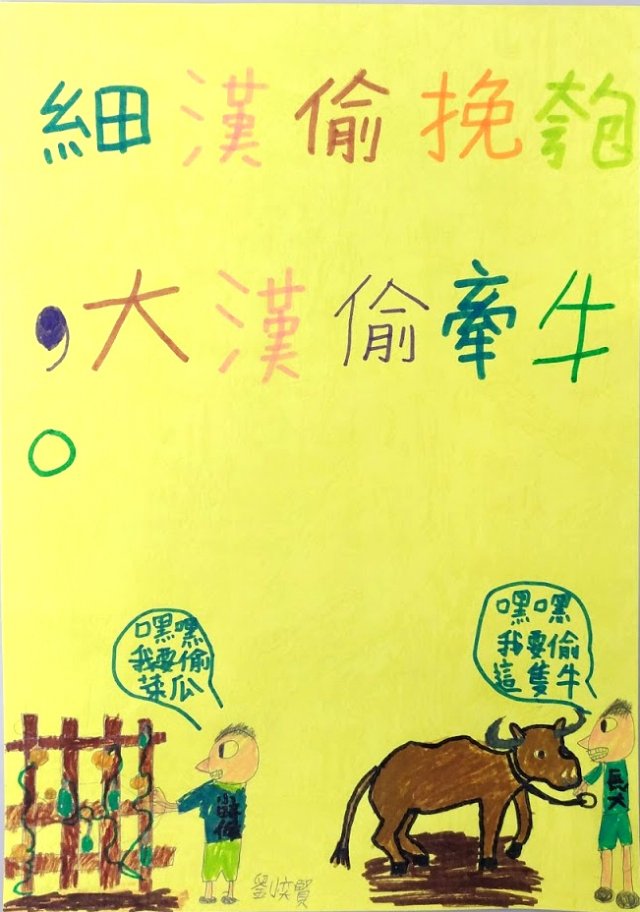 細漢偷挽匏
，大漢偷牽牛
。
嘿嘿
我要偷
菜瓜
嘿嘿
我要偷
這隻牛
小時候
長大
劉奕賢